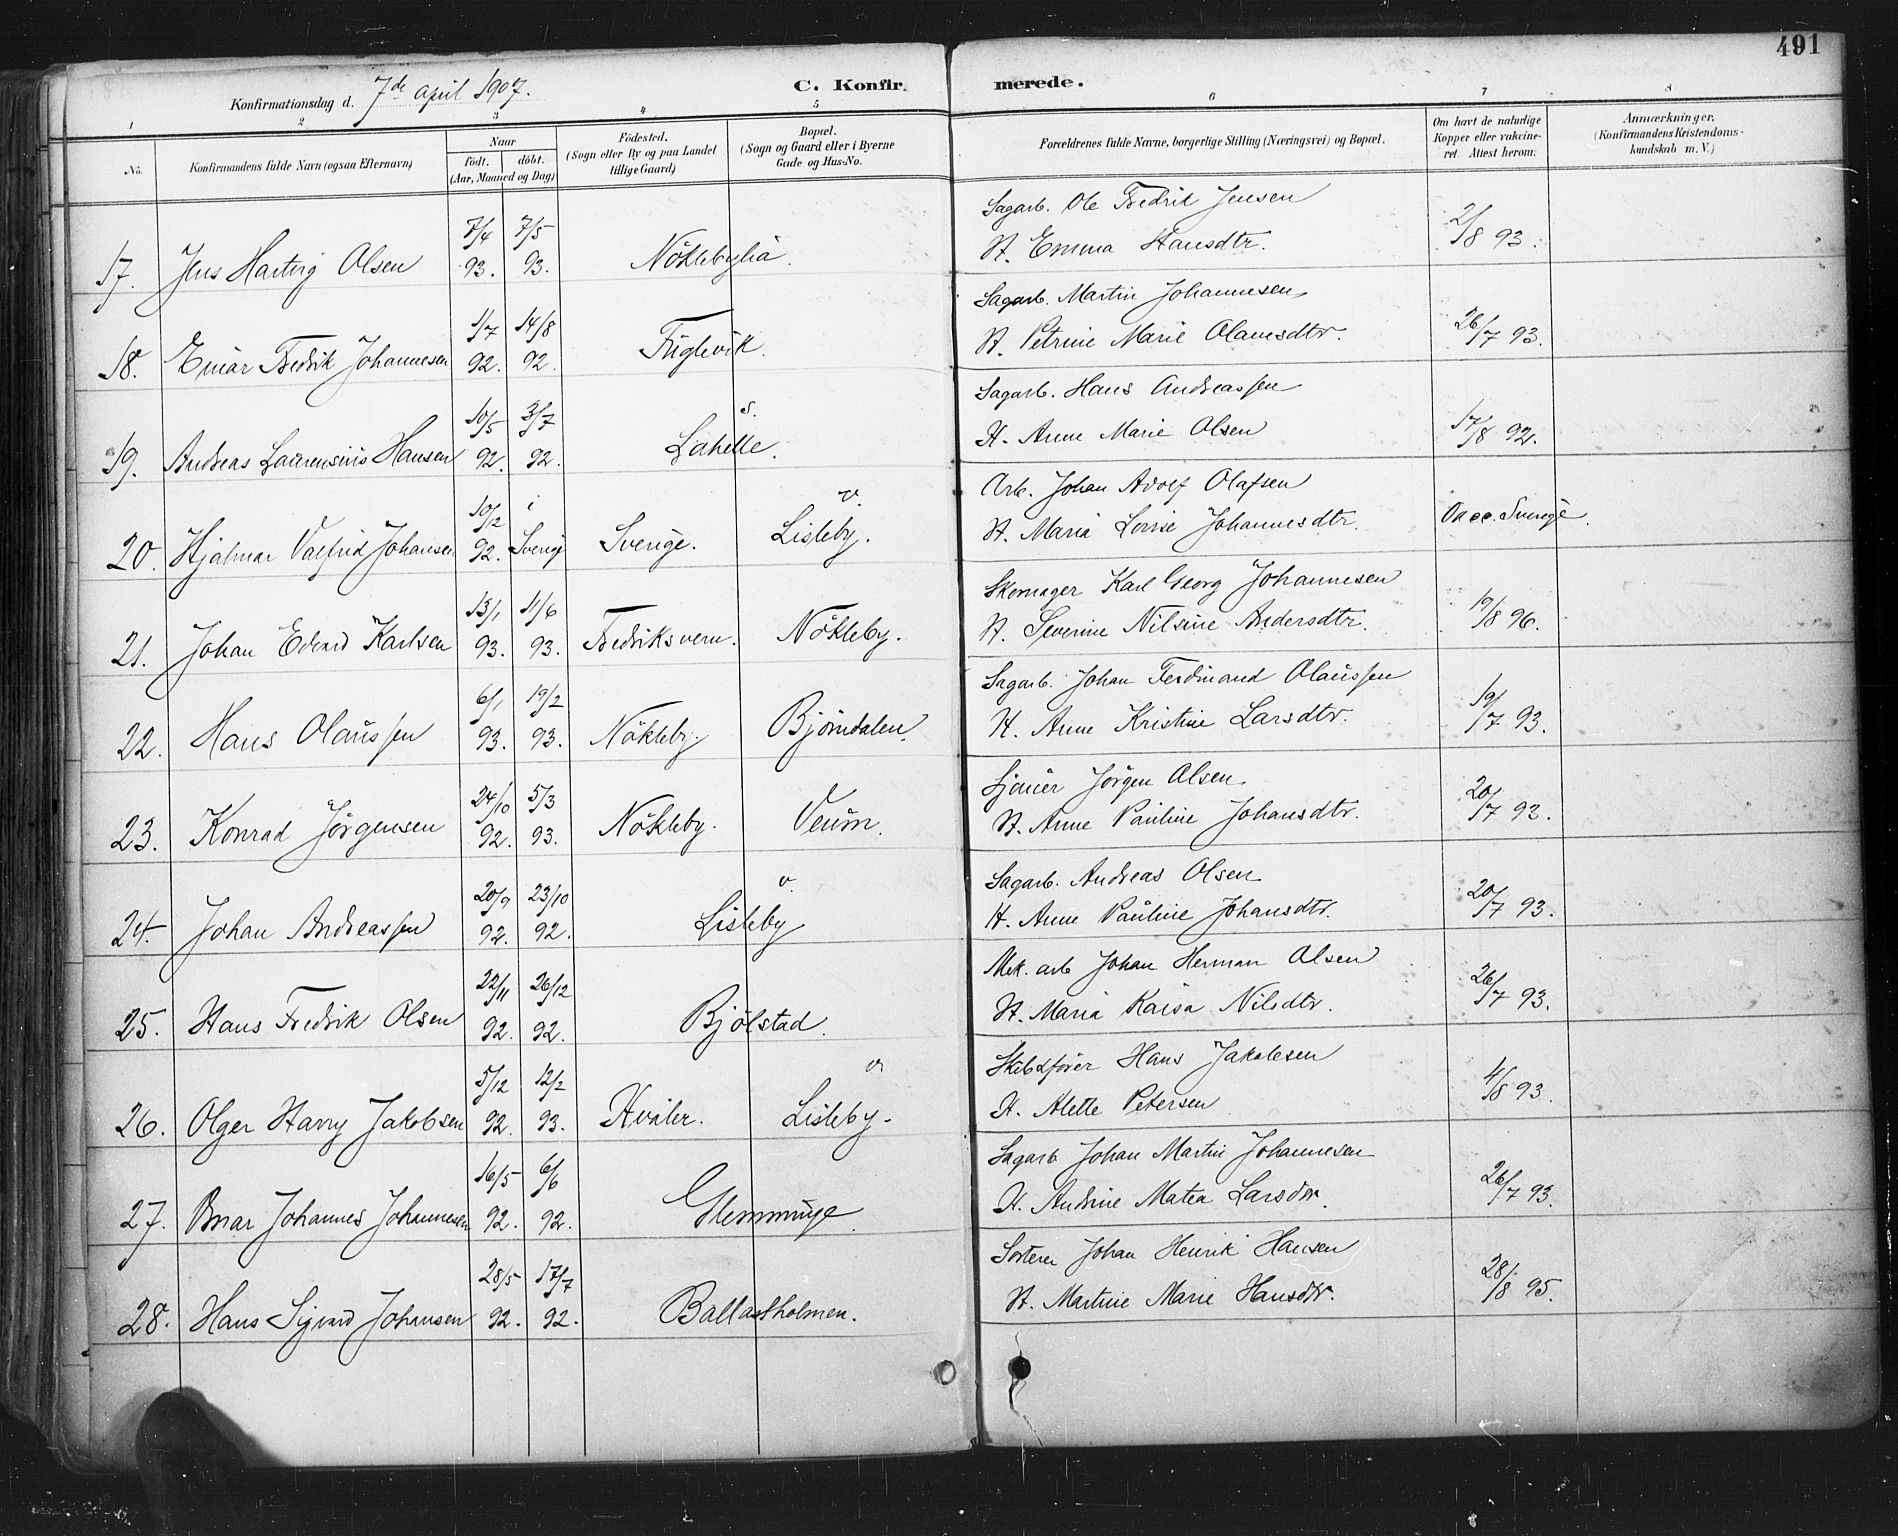 491
Konfirmationsdag d. 7de april 1907.
C. Konfirmerede.
1 2 3 4 5 6 7 8
No.
Konfirmandens fulde Navn (ogsaa Efternavn)
Naar
født. döbt.
(Aar, Maaned og Dag)
Födested.
(Sogn eller By og paa Landet
tillige Gaard)
Bopæl.
(Sogn og Gaard eller i Byerne
Gade og Hus-No.
Forældrenes fulde Navne, borgerlige Stilling (Næringsvei) og Bopæl.
Om havt de naturlige
Kopper eller vakcine-
ret. Attest herom.
Anmærkninger.
(Konfirmandens Kristendoms-
kundskab m. V.)
17. Jens Hartvig Olsen 7/4 93. 7/5 93. Nöklebylia. Sagarb. Ole Fredrik Jensen
H. Emma Hansdtr. 2/8 93.
18. Einar Fredrik Johannesen 1/7 92. 14/8 92. Fuglevik. Sagarb. Martin Johannesen
H. Petrine Marie Olausdtr. 26/7 93.
19. Andreas Laurensius Hansen 10/5 92. 3/7 92. Lahelle. s. Sagarb. Hans Andreassen
H. Anne Marie Olsen 17/8 92.
20. Hjalmar Valfrid Johansen 10/2 92. i Sverige Sverige. Lisleby. v. Arb. Johan Adolf Olafsen
H. Maria Lovise Johannesdtr. Vacc. Sverige.
21. Johan Edvard Karlsen 13/1 93. 11/6 93. Fredriksvern. Nökleby. Skomager Karl Georg Johannesen
H. Severine Nilsine Andersdtr. 19/8 96.
22. Hans Olaussen 6/1 93. 19/2 93. Nökleby. Björndalen. Sagarb. Johan Ferdinand Olaussen
H. Anne Kristine Larsdtr. 19/7 93.
23. Konrad Jörgensen 24/10 92. 5/3 93. Nökleby. Veum. Sjauer Jörgen Olsen
H. Anne Pauline Johansdtr. 20/7 93.
24. Johan Andreassen 20/9 92. 23/10 92. Lisleby v. Sagarb. Andreas Olsen
H. Anne Pauline Johansdtr. 20/7 93.
25. Hans Fredrik Olsen 22/11 92. 26/12 92. Bjölstad. Mek. arb Johan Herman Olsen
H. Maria Kaisa Nilsdtr. 26/7 93.
26. Olger Harry Jakobsen 5/12 92. 12/2 93. Hvaler. Lisleby. v. Skibsfører Hans Jakobsen
H. Alette Petersen 4/8 93.
27. Johannes Johannesen 16/5 92. 6/6 92. Glemminge. Sagarb Johan Martin Johannesen
H. Andrine Matea Larsdtr. 26/7 93.
28. Hans Sigvard Johansen 28/5 92. 17/7 92. Ballastholmen. Sorterer Johan Henrik Hansen
H. Martine Marie Hansdtr. 28/8 95.